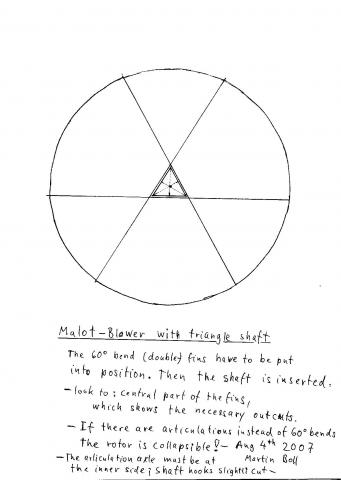 Malot-Blower with triangle shaft
The 60° bend (double) fins have to be put
into position. Then the shaft is inserted.
- look to: central part of the fins,
which shows the necessary outcuts.
- If there are articulations instead of 60° bends
the rotor is collapsible! - Aug 4th 2007
- The articulation axle must be at Martin Boll
the inner side; shaft hooks slightly cut -